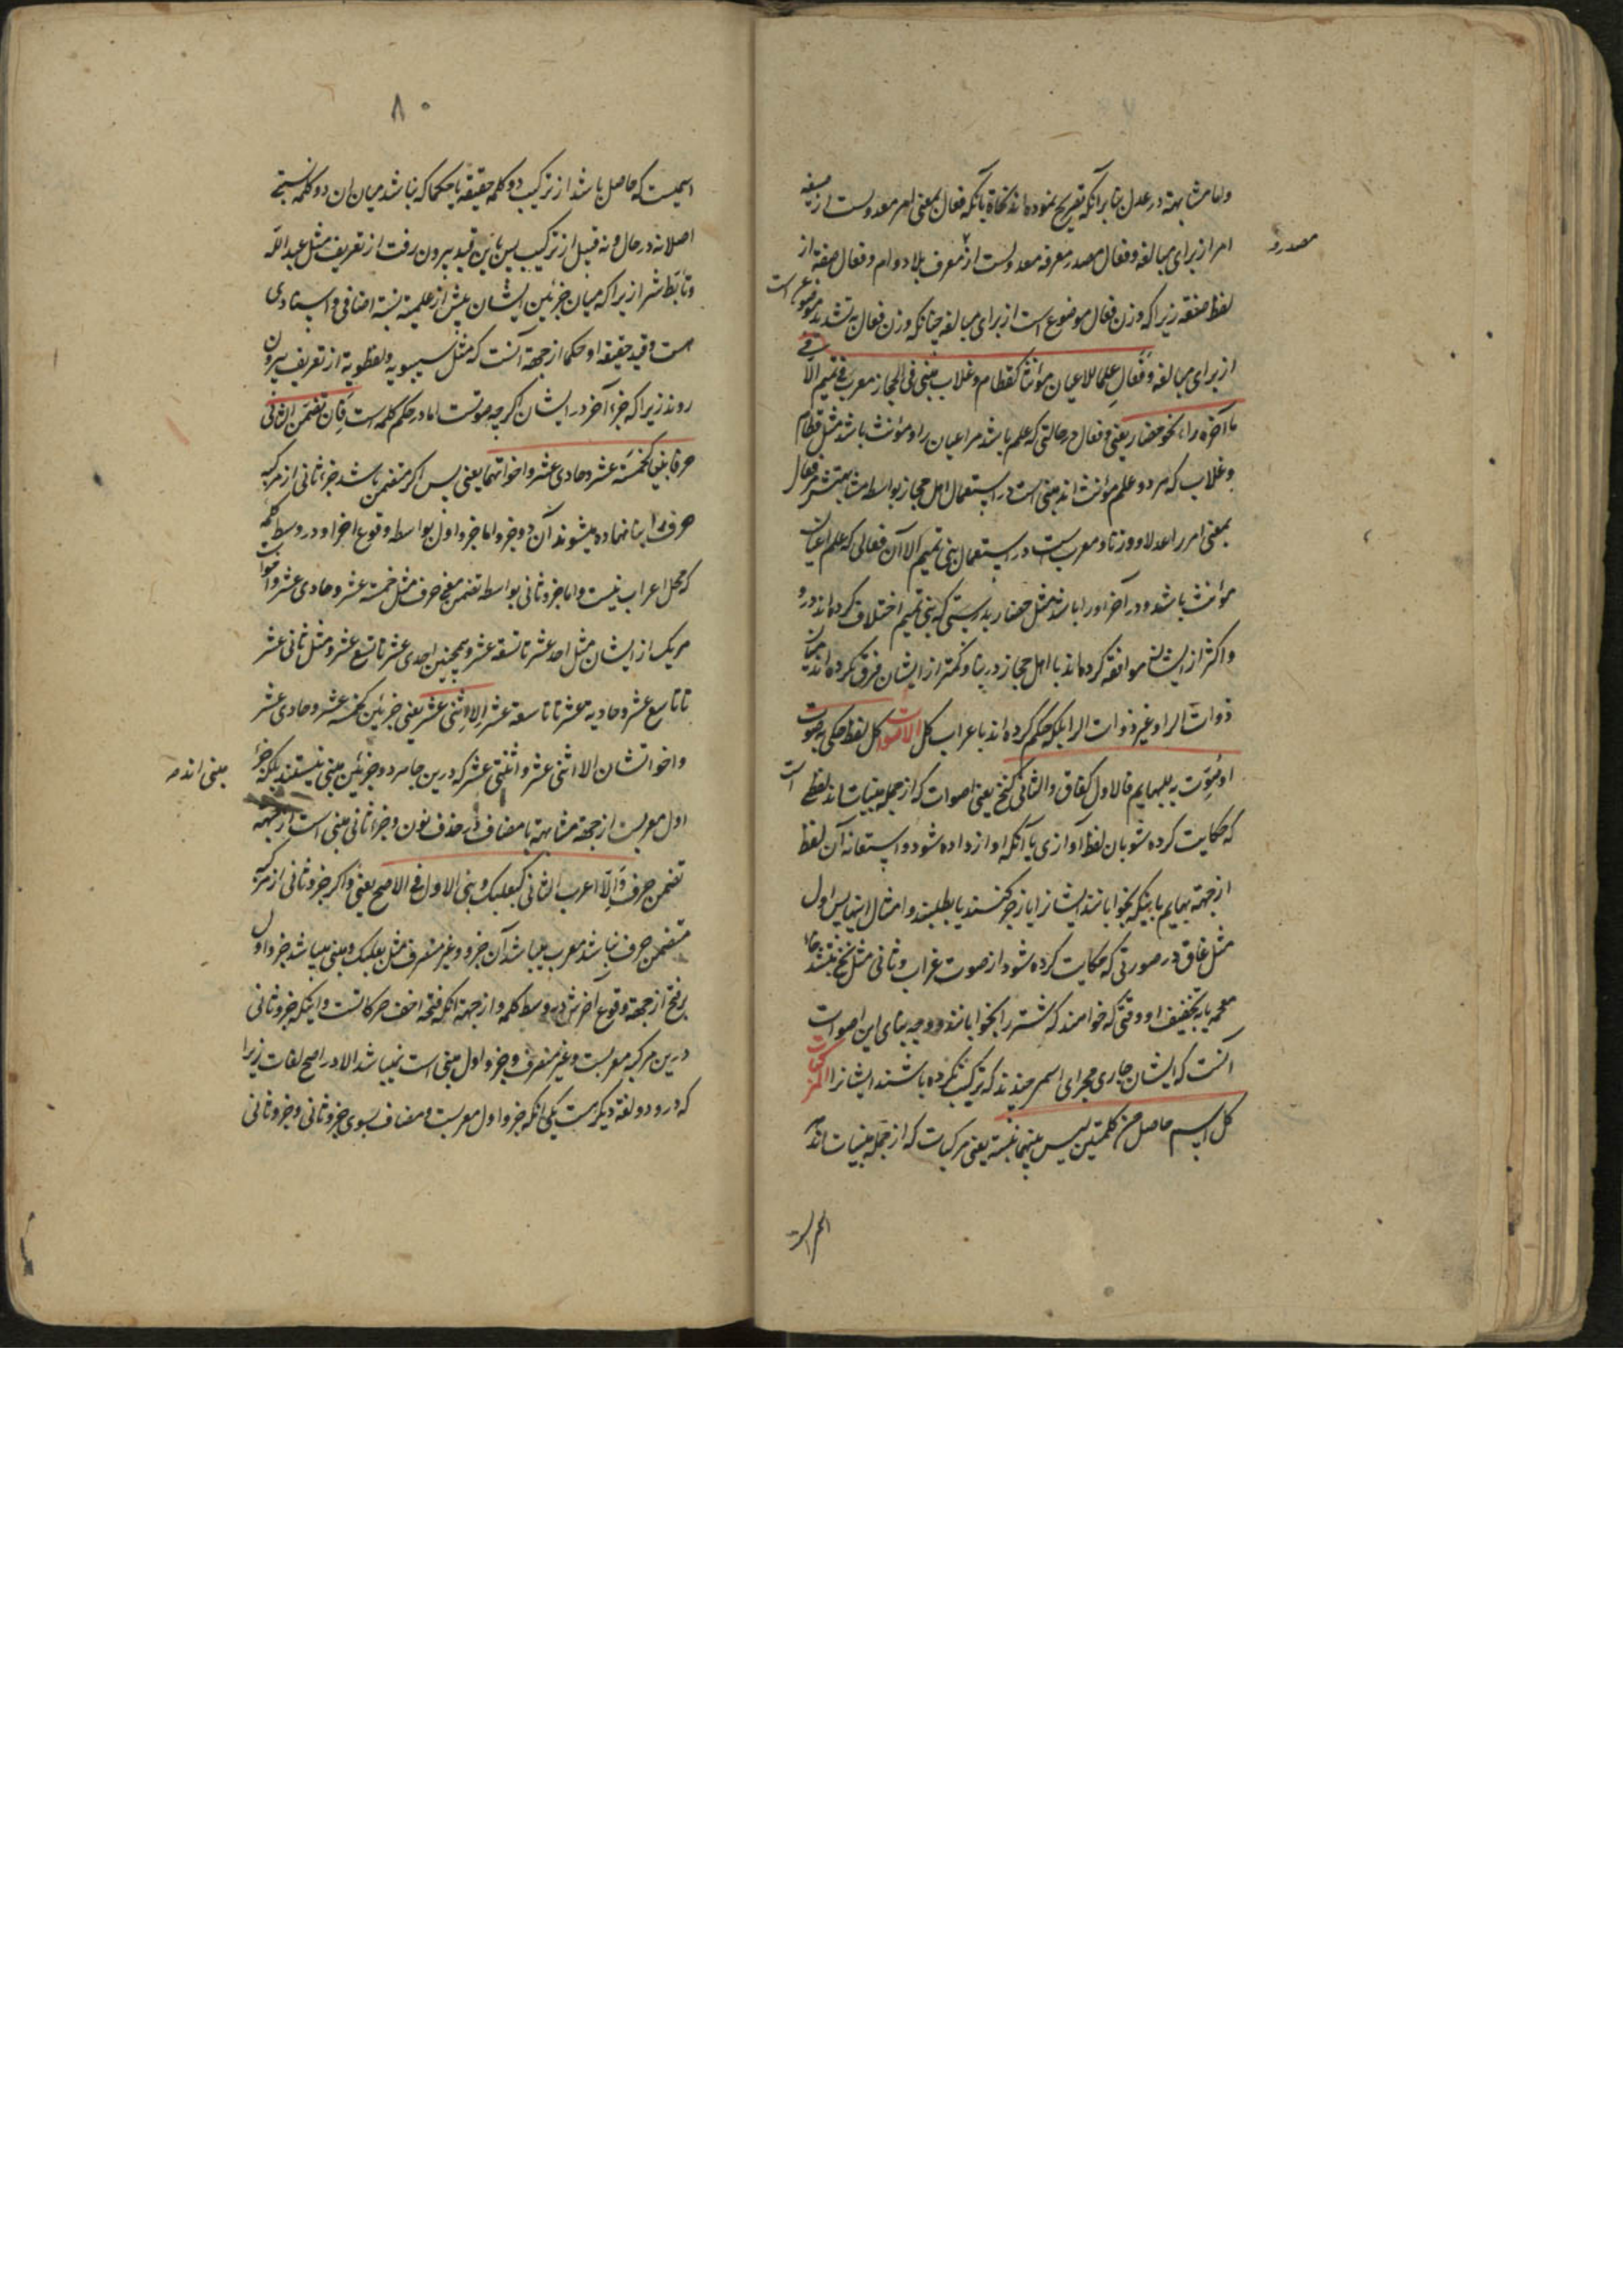 واما مشابهة در عدل بنابر آنکه تصریح نموده‌اند نحاة بآنکه فعال بمعنی امر معدولست از صیغه
امر از برای مبالغه و فعال مصدر معرفه معدولست از معرف بلا دوام و فعال صفة از
مصدر و
لفظ صفة زیرا که وزن فعال موضوع است از برای مبالغه چنانکه وزن فعال به تشدید موضوع است
از برای مبالغه وفَعالِ علما للاعیان مؤنثا کقطام وغلاب مبنی فی الحجاز معرب فی تمیم الا
ما آخره راء نحو حضار یعنی و فعال در حالتی که علم باشد مر اعیان را و مؤنث باشد مثل قطام
و غلاب که هر دو علم مؤنث‌اند مبنی است در استعمال اهل حجاز بواسطه مشابهتش فعال
بمعنی امر را عدلا و وزنا و معرب است در استعمال بنی تمیم الا آن فعالی که علم اعیان
مؤنث باشد و در آخر او را باشد مثل حضار بدرستی که بنی تمیم اختلاف کرده‌اند در و
و اکثر از ایشان موافقة کرده‌اند با اهل حجاز در بنا و کمتر از ایشان فرق نکرده‌اند میان
ذوات الرا و غیر ذوات الرا بلکه حکم کرده‌اند باعراب کل الاصوات کل لفظ حکی به صوت
او صُوِّت به للبهایم فالاول کغاق والثانی کنخ یعنی اصوات که از جمله مبنیات‌اند لفظی است
که حکایت کرده شو بان لفظ آوازی یا آنکه اواز داده شود و استعانه آن لفظ
از جهة بهایم باینکه بخوابانند ایشانرا یا زجر کنند یا بطلبند و امثال اینها پس اول
مثل غاق در صورتی که حکایت کرده شود از صوت غراب و ثانی مثل نخ بتشدید خاء
معجمه یا به تخفیف او وقتی که خواهند که شتر را بخوابانند و وجه بنای این اصوات
آنست که ایشان جاری مجرای اسمی چندند که ترکیب نکرده باشند ایشانرا المرکبات
کل اسم حاصل من کلمتین لیس بینهما نسبة یعنی مرکبات که از جمله مبنیات‌اند هر
۸۰
اسمیست که حاصل باشد از ترکیب دو کلمه حقیقة یا حکما که نباشد میان ان دو کلمه نسبتی
اصلا نه در حال و نه قبل از ترکیب پس باین قید بیرون رفت از تعریف مثل عبد اللّه
و تأبّط شرا زیرا که میان جزئین ایشان پیش از علمیة نسبة اضافی و اسنادی
هست و قید حقیقة او حکما از جهة آنست که مثل سیبویه و نفطویه از تعریف بیرون
روند زیرا که جزء آخر در ایشان اگرچه صوتست اما در حکم کلمه است فان تضمّن الثانی
حرفا بنیا کخمسة عشر وحادی عشر واخواتهما یعنی پس اگر متضمن باشد جزء ثانی از مرکب
حرف را بنا نهاده میشوند آن دو جزو اما جزو اول بواسطه وقوع اخر او در وسط کلمه
که محل اعراب نیست و اما جزو ثانی بواسطه تضمن معنی حرف مثل خمسة عشر و حادی عشر و اخوات
هر یک از ایشان مثل احد عشر تا تسعة عشر و همچنین احدی عشر تا تسع عشر و مثل ثانی عشر
تا تاسع عشر و حادیة عشر تا تاسعة عشر الا اثنی عشر یعنی جزئین کخمسة عشر و حادی عشر
و اخواتشان الا اثنی عشر و اثنتی عشر که درین جا هر دو جزئین مبنی نیستند بلکه جزء
مبنی اند
اول معربست از جهة مشابهة با مضاف در حذف نون و جزء ثانی مبنی است از جهة
تضمن حرف وَاِلّا اعرب الثانی کبعلبک وبنی الاول فی الاصح یعنی و اگر جزو ثانی از مرکب
متضمن حرف نباشد معرب میباشد آن جزو و غیر منصرف مثل بعلبک و مبنی میباشد جزو اول
بر فتح از جهة وقوع آخرش در وسط کلمه و از جهة انکه فتحه اخف حرکاتست و اینکه جزو ثانی
درین مرکب معربست و غیر منصرف و جزو اول مبنی است نمیباشد الا در اصح لغات زیرا
که درو دو لغة دیگر هست یکی انکه جزو اول معربست و مضاف بسوی جزو ثانی و جزو ثانی